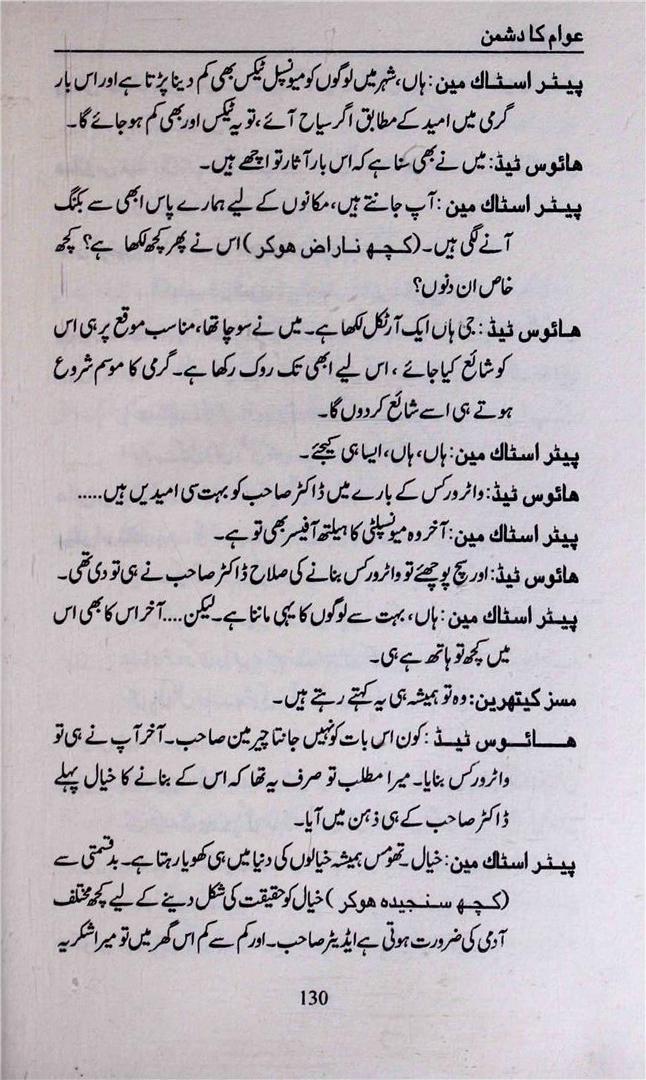 عوام کا دشمن
پیٹر اسٹاک مین: ہاں، شہر میں لوگوں کو میونسپل ٹیکس بھی کم دینا پڑتا ہے اور اس بار
گرمی میں امید کے مطابق اگر سیاح آئے، تو یہ ٹیکس اور بھی کم ہو جائے گا۔
ھائوس ٹیڈ: میں نے بھی سنا ہے کہ اس بار آثار تو اچھے ہیں۔
پیٹر اسٹاک مین: آپ جانتے ہیں، مکانوں کے لیے ہمارے پاس ابھی سے بکنگ
آنے لگی ہیں۔ (کچھ ناراض ھوکر) اس نے پھر کچھ لکھا ہے؟ کچھ
خاص ان دنوں؟
ھائوس ٹیڈ: جی ہاں ایک آرٹکل لکھا ہے۔ میں نے سوچا تھا، مناسب موقع پر ہی اس
کو شائع کیا جائے، اس لیے ابھی تک روک رکھا ہے۔ گرمی کا موسم شروع
ہوتے ہی اسے شائع کر دوں گا۔
پیٹر اسٹاک مین: ہاں، ہاں، ایسا ہی کیجئے۔
ھائوس ٹیڈ: واٹر ورکس کے بارے میں ڈاکٹر صاحب کو بہت سی امیدیں ہیں.....
پیٹر اسٹاک مین: آخر وہ میونسپلٹی کا ہیلتھ آفیسر بھی تو ہے۔
ھائوس ٹیڈ: اور سچ پوچھئے تو واٹر ورکس بنانے کی صلاح ڈاکٹر صاحب نے ہی تو دی تھی۔
پیٹر اسٹاک مین: ہاں، بہت سے لوگوں کا یہی ماننا ہے۔ لیکن.... آخر اس کا بھی اس
میں کچھ تو ہاتھ ہے ہی۔
مسز کیتھرین: وہ تو ہمیشہ ہی یہ کہتے رہتے ہیں۔
ھائوس ٹیڈ: کون اس بات کو نہیں جانتا چیرمین صاحب۔ آخر آپ نے ہی تو
واٹر ورکس بنایا۔ میرا مطلب تو صرف یہ تھا کہ اس کے بنانے کا خیال پہلے
ڈاکٹر صاحب کے ہی ذہن میں آیا۔
پیٹر اسٹاک مین: خیال۔ تھومس ہمیشہ خیالوں کی دنیا میں ہی کھویا رہتا ہے۔ بدقسمتی سے
(کچھ سنجیدہ ھوکر) خیال کو حقیقت کی شکل دینے کے لیے کچھ مختلف
آدمی کی ضرورت ہوتی ہے ایڈیٹر صاحب۔ اور کم سے کم اس گھر میں تو میرا شکریہ
130